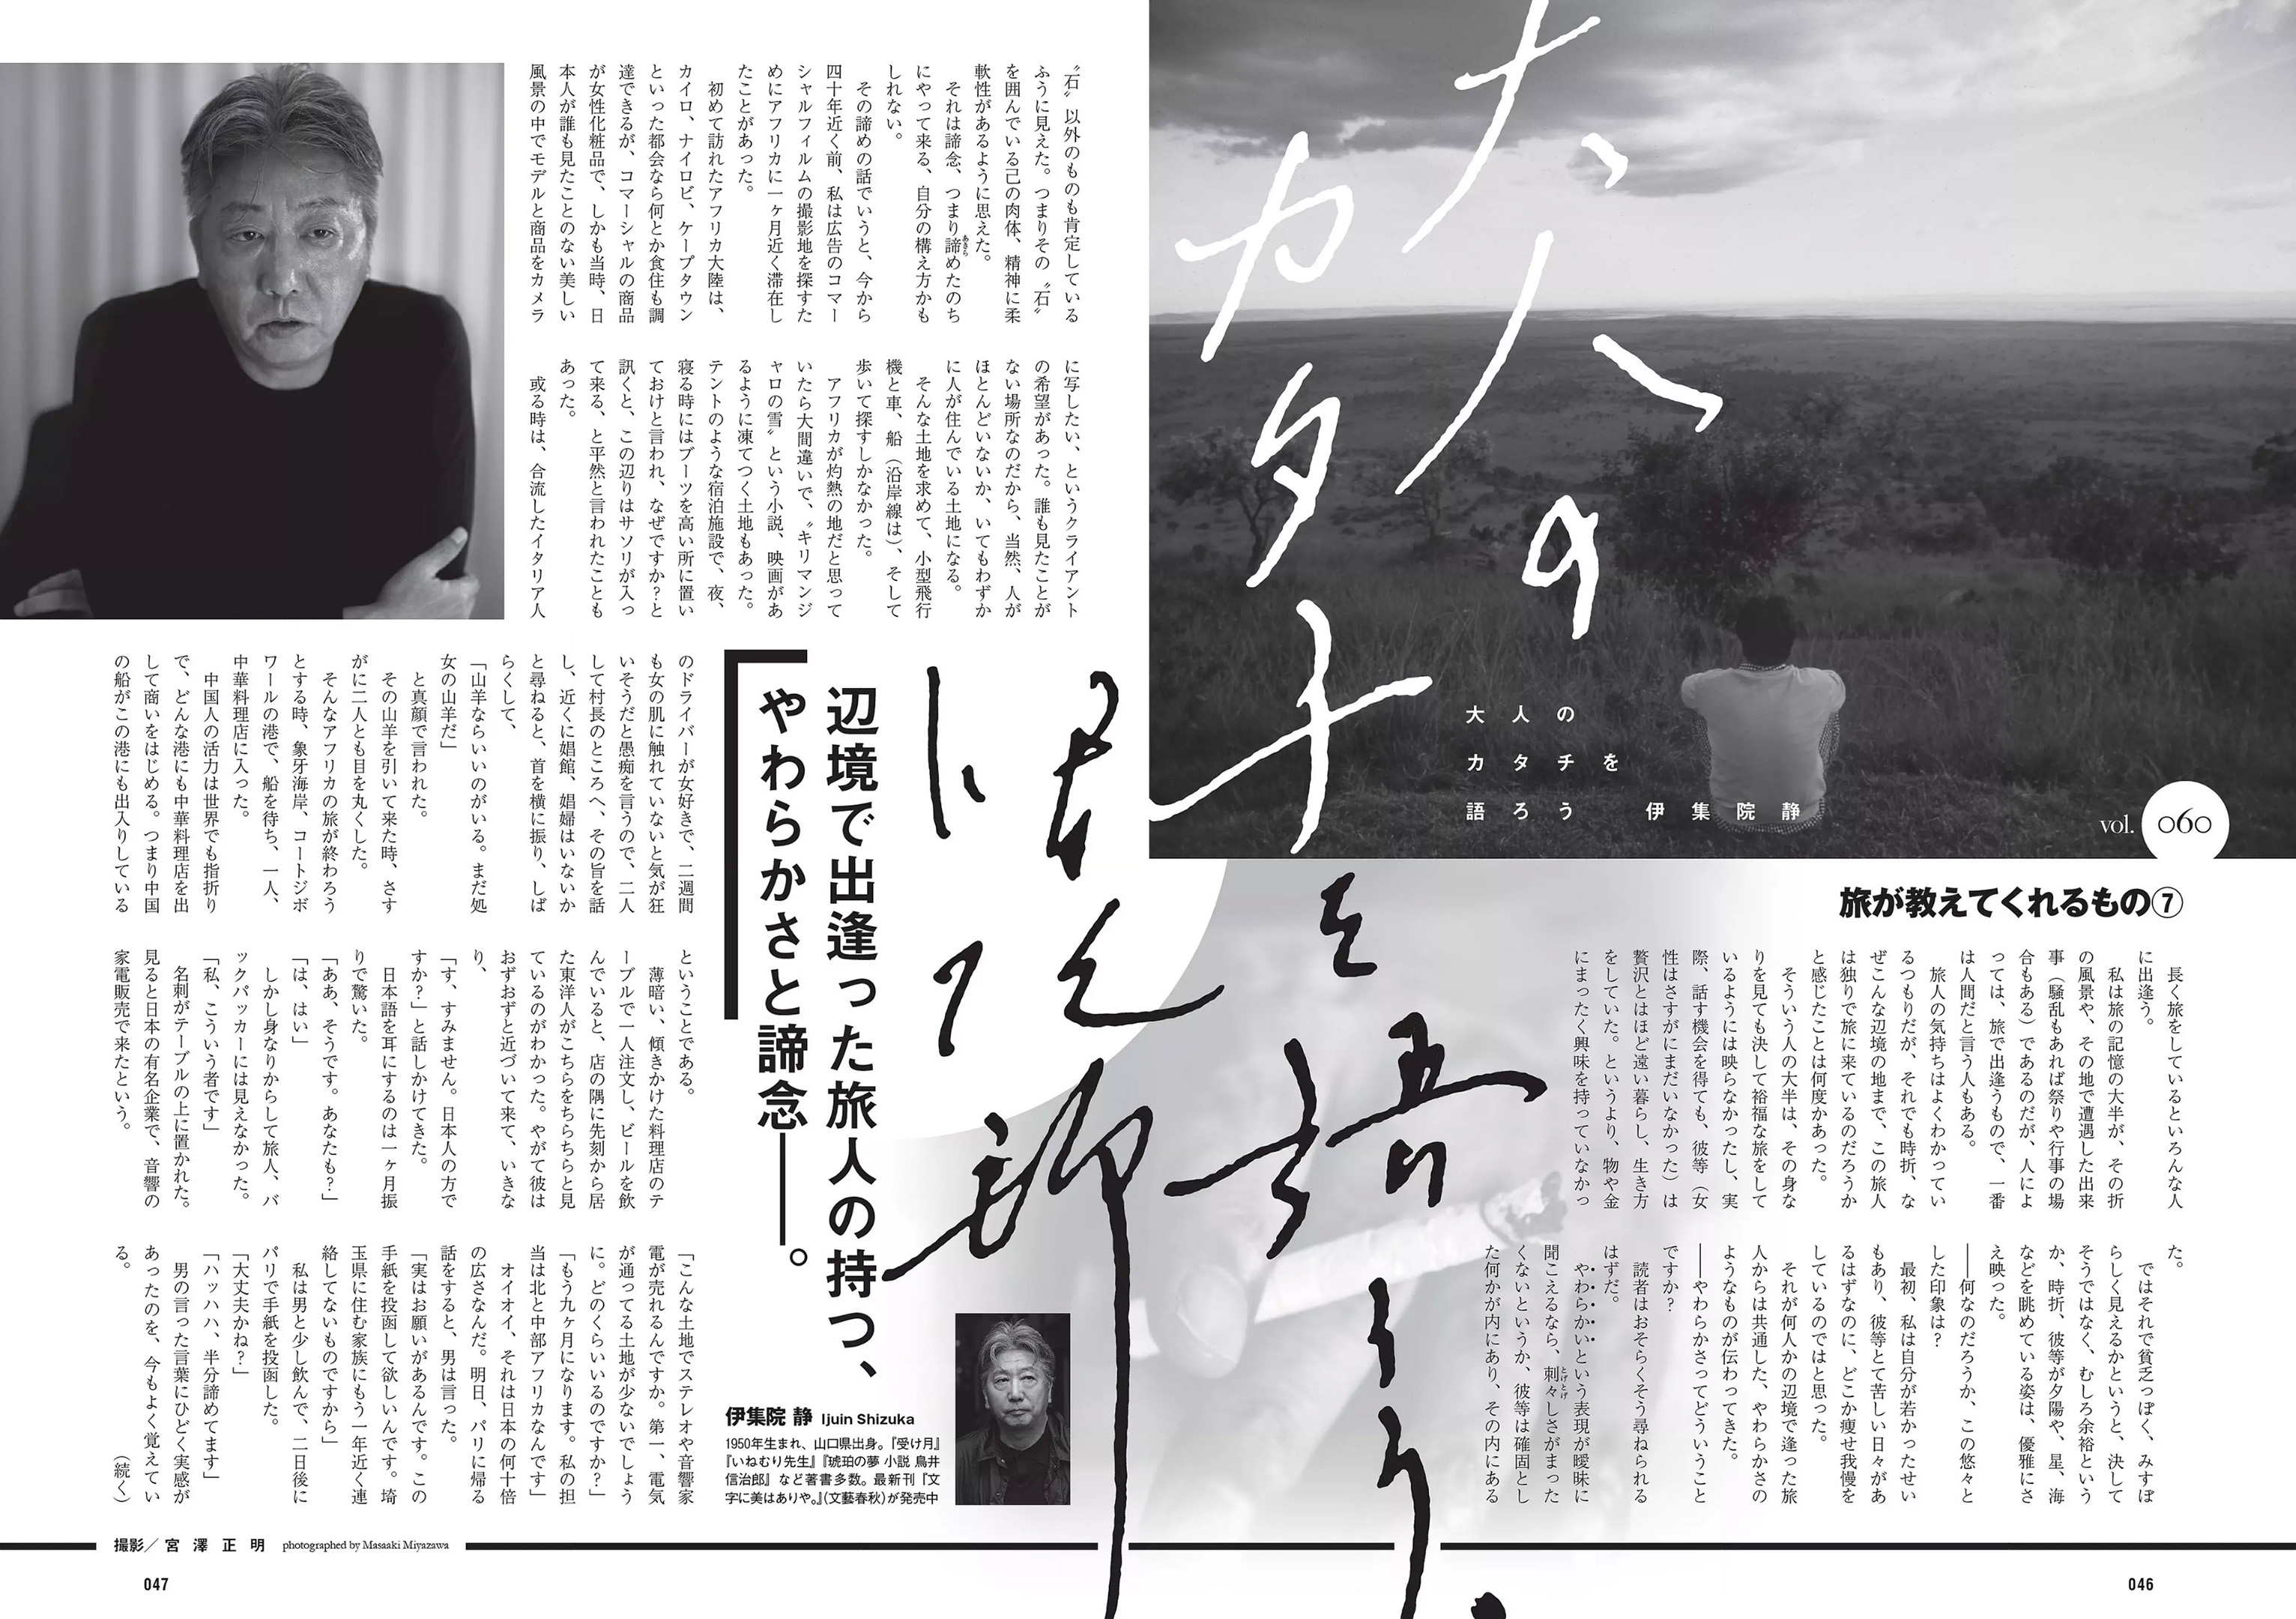 大人の
カタチ
を語ろう。
伊集院静
大人の
カタチを
語ろう 伊集院静
vol. 060
旅が教えてくれるもの⑦
長く旅をしているといろんな人
に出逢う。
私は旅の記憶の大半が、その折
の風景や、その地で遭遇した出来
事（騒乱もあれば祭りや行事の場
合もある）であるのだが、人によ
っては、旅で出逢うもので、一番
は人間だと言う人もある。
旅人の気持ちはよくわかってい
るつもりだが、それでも時折、な
ぜこんな辺境の地まで、この旅人
は独りで旅に来ているのだろうか
と感じたことは何度かあった。
そういう人の大半は、その身な
りを見ても決して裕福な旅をして
いるようには映らなかったし、実
際、話す機会を得ても、彼等（女
性はさすがにまだいなかった）は
贅沢とはほど遠い暮らし、生き方
をしていた。というより、物や金
にまったく興味を持っていなかっ
た。
ではそれで貧乏っぽく、みすぼ
らしく見えるかというと、決して
そうではなく、むしろ余裕という
か、時折、彼等が夕陽や、星、海
などを眺めている姿は、優雅にさ
え映った。
――何なのだろうか、この悠々と
した印象は？
最初、私は自分が若かったせい
もあり、彼等とて苦しい日々があ
るはずなのに、どこか痩せ我慢を
しているのではと思った。
それが何人かの辺境で逢った旅
人からは共通した、やわらかさの
ようなものが伝わってきた。
――やわらかさってどういうこと
ですか？
読者はおそらくそう尋ねられる
はずだ。
やわらかいという表現が曖昧に
聞こえるなら、刺々しさがまった
くないというか、彼等は確固とし
た何かが内にあり、その内にある
〝石〟以外のものも肯定している
ふうに見えた。つまりその〝石〟
を囲んでいる己の肉体、精神に柔
軟性があるように思えた。
それは諦念、つまり諦めたのち
にやって来る、自分の構え方かも
しれない。
その諦めの話でいうと、今から
四十年近く前、私は広告のコマー
シャルフィルムの撮影地を探すた
めにアフリカに一ヶ月近く滞在し
たことがあった。
初めて訪れたアフリカ大陸は、
カイロ、ナイロビ、ケープタウン
といった都会なら何とか食住も調
達できるが、コマーシャルの商品
が女性化粧品で、しかも当時、日
本人が誰も見たことのない美しい
風景の中でモデルと商品をカメラ
に写したい、というクライアント
の希望があった。誰も見たことが
ない場所なのだから、当然、人が
ほとんどいないか、いてもわずか
に人が住んでいる土地になる。
そんな土地を求めて、小型飛行
機と車、船（沿岸線は）、そして
歩いて探すしかなかった。
アフリカが灼熱の地だと思って
いたら大間違いで、〝キリマンジ
ャロの雪〟という小説、映画があ
るように凍てつく土地もあった。
テントのような宿泊施設で、夜、
寝る時にはブーツを高い所に置い
ておけと言われ、なぜですか？と
訊くと、この辺りはサソリが入っ
て来る、と平然と言われたことも
あった。
或る時は、合流したイタリア人
のドライバーが女好きで、二週間
も女の肌に触れていないと気が狂
いそうだと愚痴を言うので、二人
して村長のところへ、その旨を話
し、近くに娼館、娼婦はいないか
と尋ねると、首を横に振り、しば
らくして、
「山羊ならいいのがいる。まだ処
女の山羊だ」
と真顔で言われた。
その山羊を引いて来た時、さす
がに二人とも目を丸くした。
そんなアフリカの旅が終わろう
とする時、象牙海岸、コートジボ
ワールの港で、船を待ち、一人、
中華料理店に入った。
中国人の活力は世界でも指折り
で、どんな港にも中華料理店を出
して商いをはじめる。つまり中国
の船がこの港にも出入りしている
ということである。
薄暗い、傾きかけた料理店のテ
ーブルで一人注文し、ビールを飲
んでいると、店の隅に先刻から居
た東洋人がこちらをちらちらと見
ているのがわかった。やがて彼は
おずおずと近づいて来て、いきな
り、
「す、すみません。日本人の方で
すか？」と話しかけてきた。
日本語を耳にするのは一ヶ月振
りで驚いた。
「ああ、そうです。あなたも？」
「は、はい」
しかし身なりからして旅人、バ
ックパッカーには見えなかった。
「私、こういう者です」
名刺がテーブルの上に置かれた。
見ると日本の有名企業で、音響の
家電販売で来たという。
「こんな土地でステレオや音響家
電が売れるんですか。第一、電気
が通ってる土地が少ないでしょう
に。どのくらいいるのですか？」
「もう九ヶ月になります。私の担
当は北と中部アフリカなんです」
オイオイ、それは日本の何十倍
の広さなんだ。明日、パリに帰る
話をすると、男は言った。
「実はお願いがあるんです。この
手紙を投函して欲しいんです。埼
玉県に住む家族にもう一年近く連
絡してないものですから」
私は男と少し飲んで、二日後に
パリで手紙を投函した。
「大丈夫かね？」
「ハッハハ、半分諦めてます」
男の言った言葉にひどく実感が
あったのを、今もよく覚えてい
る。
（続く）
辺境で出逢った旅人の持つ、
やわらかさと諦念――。
伊集院 静 Ijuin Shizuka
1950年生まれ、山口県出身。『受け月』
『いねむり先生』『琥珀の夢 小説 鳥井
信治郎』など著書多数。最新刊『文
字に美はありや。』(文藝春秋)が発売中
撮影／宮澤正明 photographed by Masaaki Miyazawa
047
046